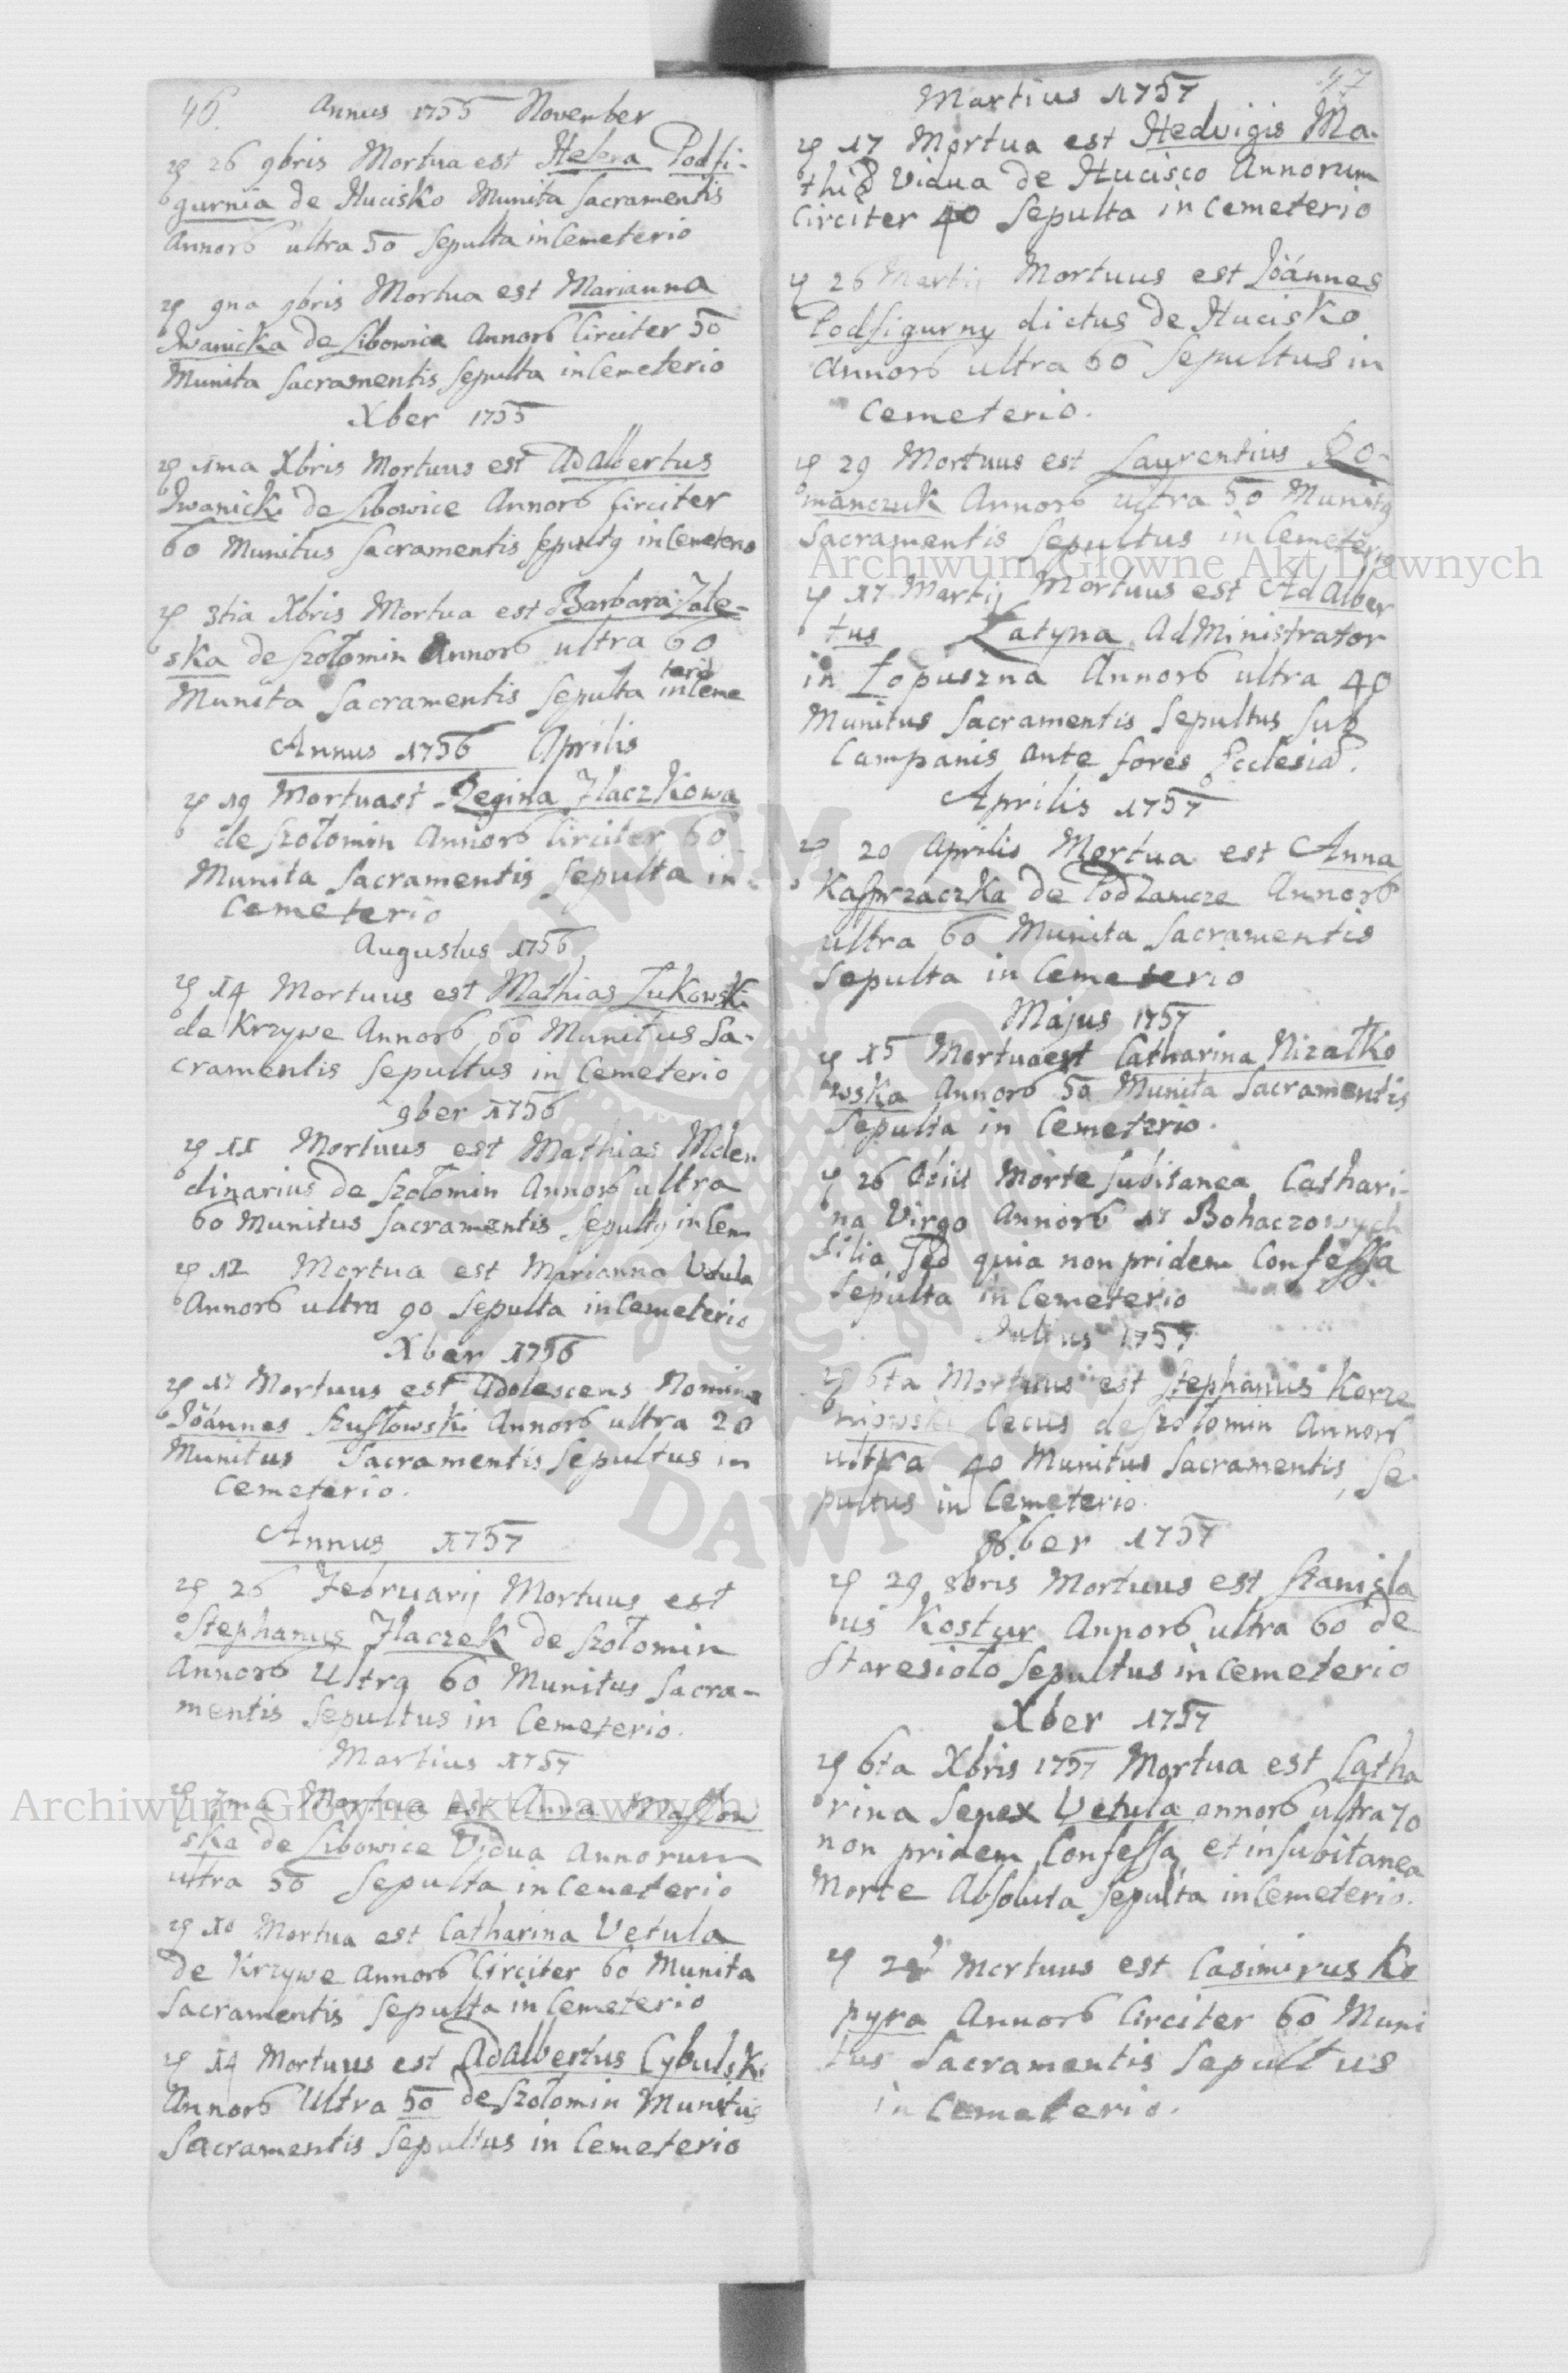 46. Annus 1755 November
26 9bris Mortua est Helena Podfi-
gurnia de Hucisko Munita Sacramentis
Annor6 ultra 50 Sepulta in Cemeterio
9na 9bris Mortua est Marianna
Iwanicka de Libowice Annor6 Circiter 50
Munita Sacramentis Sepulta in Cemeterio
Xber 1755
1ma Xbris Mortuus est Adalbertus
Iwanicki de Libowice Annor6 Circiter
60 Munitus Sacramentis Sepult9 in Cemeterio
3tia Xbris Mortua est Barbara Zale-
ska de Szołomin Annor6 ultra 60
Munita Sacramentis Sepulta in Ceme
terio
Annus 1756 Aprilis
19 Mortuast Regina Flaczkowa
de Szołomin Annor6 Circiter 60
Munita Sacramentis Sepulta in
Cemeterio
Augustus 1756
14 Mortuus est Mathias Zukowski
de Krzywe Annor6 60 Munitus Sa-
cramentis Sepultus in Cemeterio
9ber 1756
11 Mortuus est Mathias Mden
dinarius de Szołomin Annor6 ultra
60 Munitus Sacramentis Sepult9 in Cem
12 Mortua est Marianna Vetula
Annor6 ultra 90 Sepulta in Cemeterio
Xber 1756
17 Mortuus est Adolescens Nomine
Joánnes Szusłowski Annor6 ultra 20
Munitus Sacramentis Sepultus in
Cemeterio.
Annus 1757
26 Februarij Mortuus est
Stephanus Flaczek de Szołomin
Annor6 Ultra 60 Munitus Sacra-
mentis Sepultus in Cemeterio.
Martius 1757
7ma Mortua est Anna Masłow
ska de Libowice Vidua Annorum
ultra 50 Sepulta in Cemeterio
10 Mortua est Catharina Vetula
de Krzywe Annor6 Circiter 60 Munita
Sacramentis Sepulta in Cemeterio
14 Mortuus est Adalbertus Cybulski
Annor6 Ultra 50 de Szołomin Munitus
Sacramentis Sepultus in Cemeterio
47
Martius 1757
17 Mortua est Hedvigis Ma-
Vidua de Hucisco Annorum
Circiter 40 Sepulta in Cemeterio
26 Martij Mortuus est Joánnes
Podfigurny dictus de Hucisko
Annor6 ultra 60 Sepultus in
Cemeterio.
29 Mortuus est Laurentius Ro-
manczuk Annor6 ultra 50 Munit9
Sacramentis Sepultus in Cemeterio
17 Martij Mortuus est Adalber
tus Łatyna AdMinistrator
in Łopuszna Annor6 ultra 40
Munitus Sacramentis Sepultus Sub
Campanis ante fores Ecclesiæ.
Aprilis 1757
20 Aprilis Mortua est Anna
Kasprzaczka de Podzamcze Annor6
ultra 60 Munita Sacramentis
Sepulta in Cemeterio
Majus 1757
15 Mortuaest Catharina Nizałko
wska Annor6 50 Munita Sacramentis
Sepulta in Cemeterio.
26 Obiit Morte Subitanea Cathari-
na Virgo Annor6 17 Bohaczowych
Filia Sed quia non pridem Confessa
Sepulta in Cemeterio
Julius 1757
6ta Mortuus est Stephanus Korze
niowski Cecus de Szołomin Annor6
ultra 40 Munitus Sacramentis, Se-
pultus in Cemeterio.
8ber 1757
29 8bris Mortuus est Stanisla
us Kostur Annor6 ultra 60 de
Staresioło Sepultus in Cemeterio
Xber 1757
6ta Xbris 1757 Mortua est Catha
rina Senex Vetula annor6 ultra 70
non pridem Confessa, et in Subitanea
Morte Absoluta Sepulta in Cemeterio.
Mortuus est Casimirus Ko
pyra Annor6 Circiter 60 Muni
tus Sacramentis Sepultus
in Cemeterio.
Archiwum Głowne Akt Dawnych
Archiwum Głowne Akt Dawnych